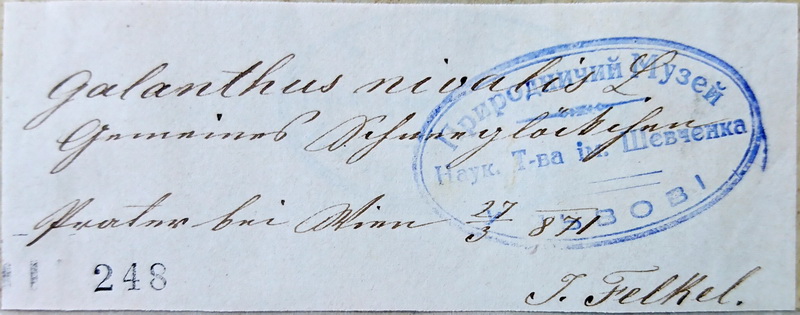 Galanthus nivalis L
Gemeines Schneeglöckchen
Prater bei Wien 27/3 871
248
J. Felkel.
Природничий Музей
Наук. Т-ва ім. Шевченка
у Львові